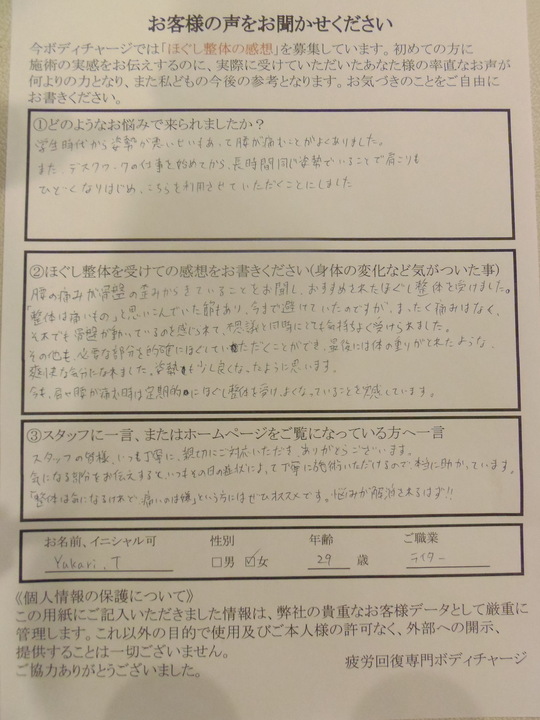 お客様の声をお聞かせください
今ボディチャージでは「ほぐし整体の感想」を募集しています。初めての方に
施術の実感をお伝えするのに、実際に受けていただいたあなた様の率直なお声が
何よりの力となり、また私どもの今後の参考となります。お気づきのことをご自由に
お書きください。
①どのようなお悩みで来られましたか？
学生時代から姿勢が悪いせいもあって腰が痛むことがよくありました。
また、デスクワークの仕事を始めてから、長時間同じ姿勢でいることで肩こりも
ひどくなりはじめ、こちらを利用させていただくことにしました
②ほぐし整体を受けての感想をお書きください(身体の変化など気がついた事)
腰の痛みが骨盤の歪みからきていることをお聞し、おすすめされたほぐし整体を受けました。
「整体は痛いもの」と思いこんでいた節もあり、今まで避けていたのですが、まったく痛みはなく、
それでも骨盤が動いているのを感じられて、不思議と同時にとても気持ちよく受けられました。
その他も、必要な部分を的確にほぐしていただくことができ、最後には体の重りがとれたような、
爽快な気分になれました。姿勢も少し良くなったように思います。
今も、肩や腰が痛む時は定期的にほぐし整体を受け、よくなっていることを実感しています。
③スタッフに一言、またはホームページをご覧になっている方へ一言
スタッフの皆様、いつも丁寧に、親切にご対応いただき、ありがとうございます。
気になる部分をお伝えすると、いつもその日の症状によって丁寧に施術いただけるので、本当に助かっています。
「整体は気になるけれど、痛いのは嫌」という方にはぜひオススメです。悩みが解消されるはず!!
お名前、イニシャル可 性別 年齢 ご職業
Yukari.T □男 ☑女 29 歳 ライター
《個人情報の保護について》
この用紙にご記入いただきました情報は、弊社の貴重なお客様データとして厳重に
管理します。これ以外の目的で使用及びご本人様の許可なく、外部への開示、
提供することは一切ございません。
ご協力ありがとうございました。
疲労回復専門ボディチャージ